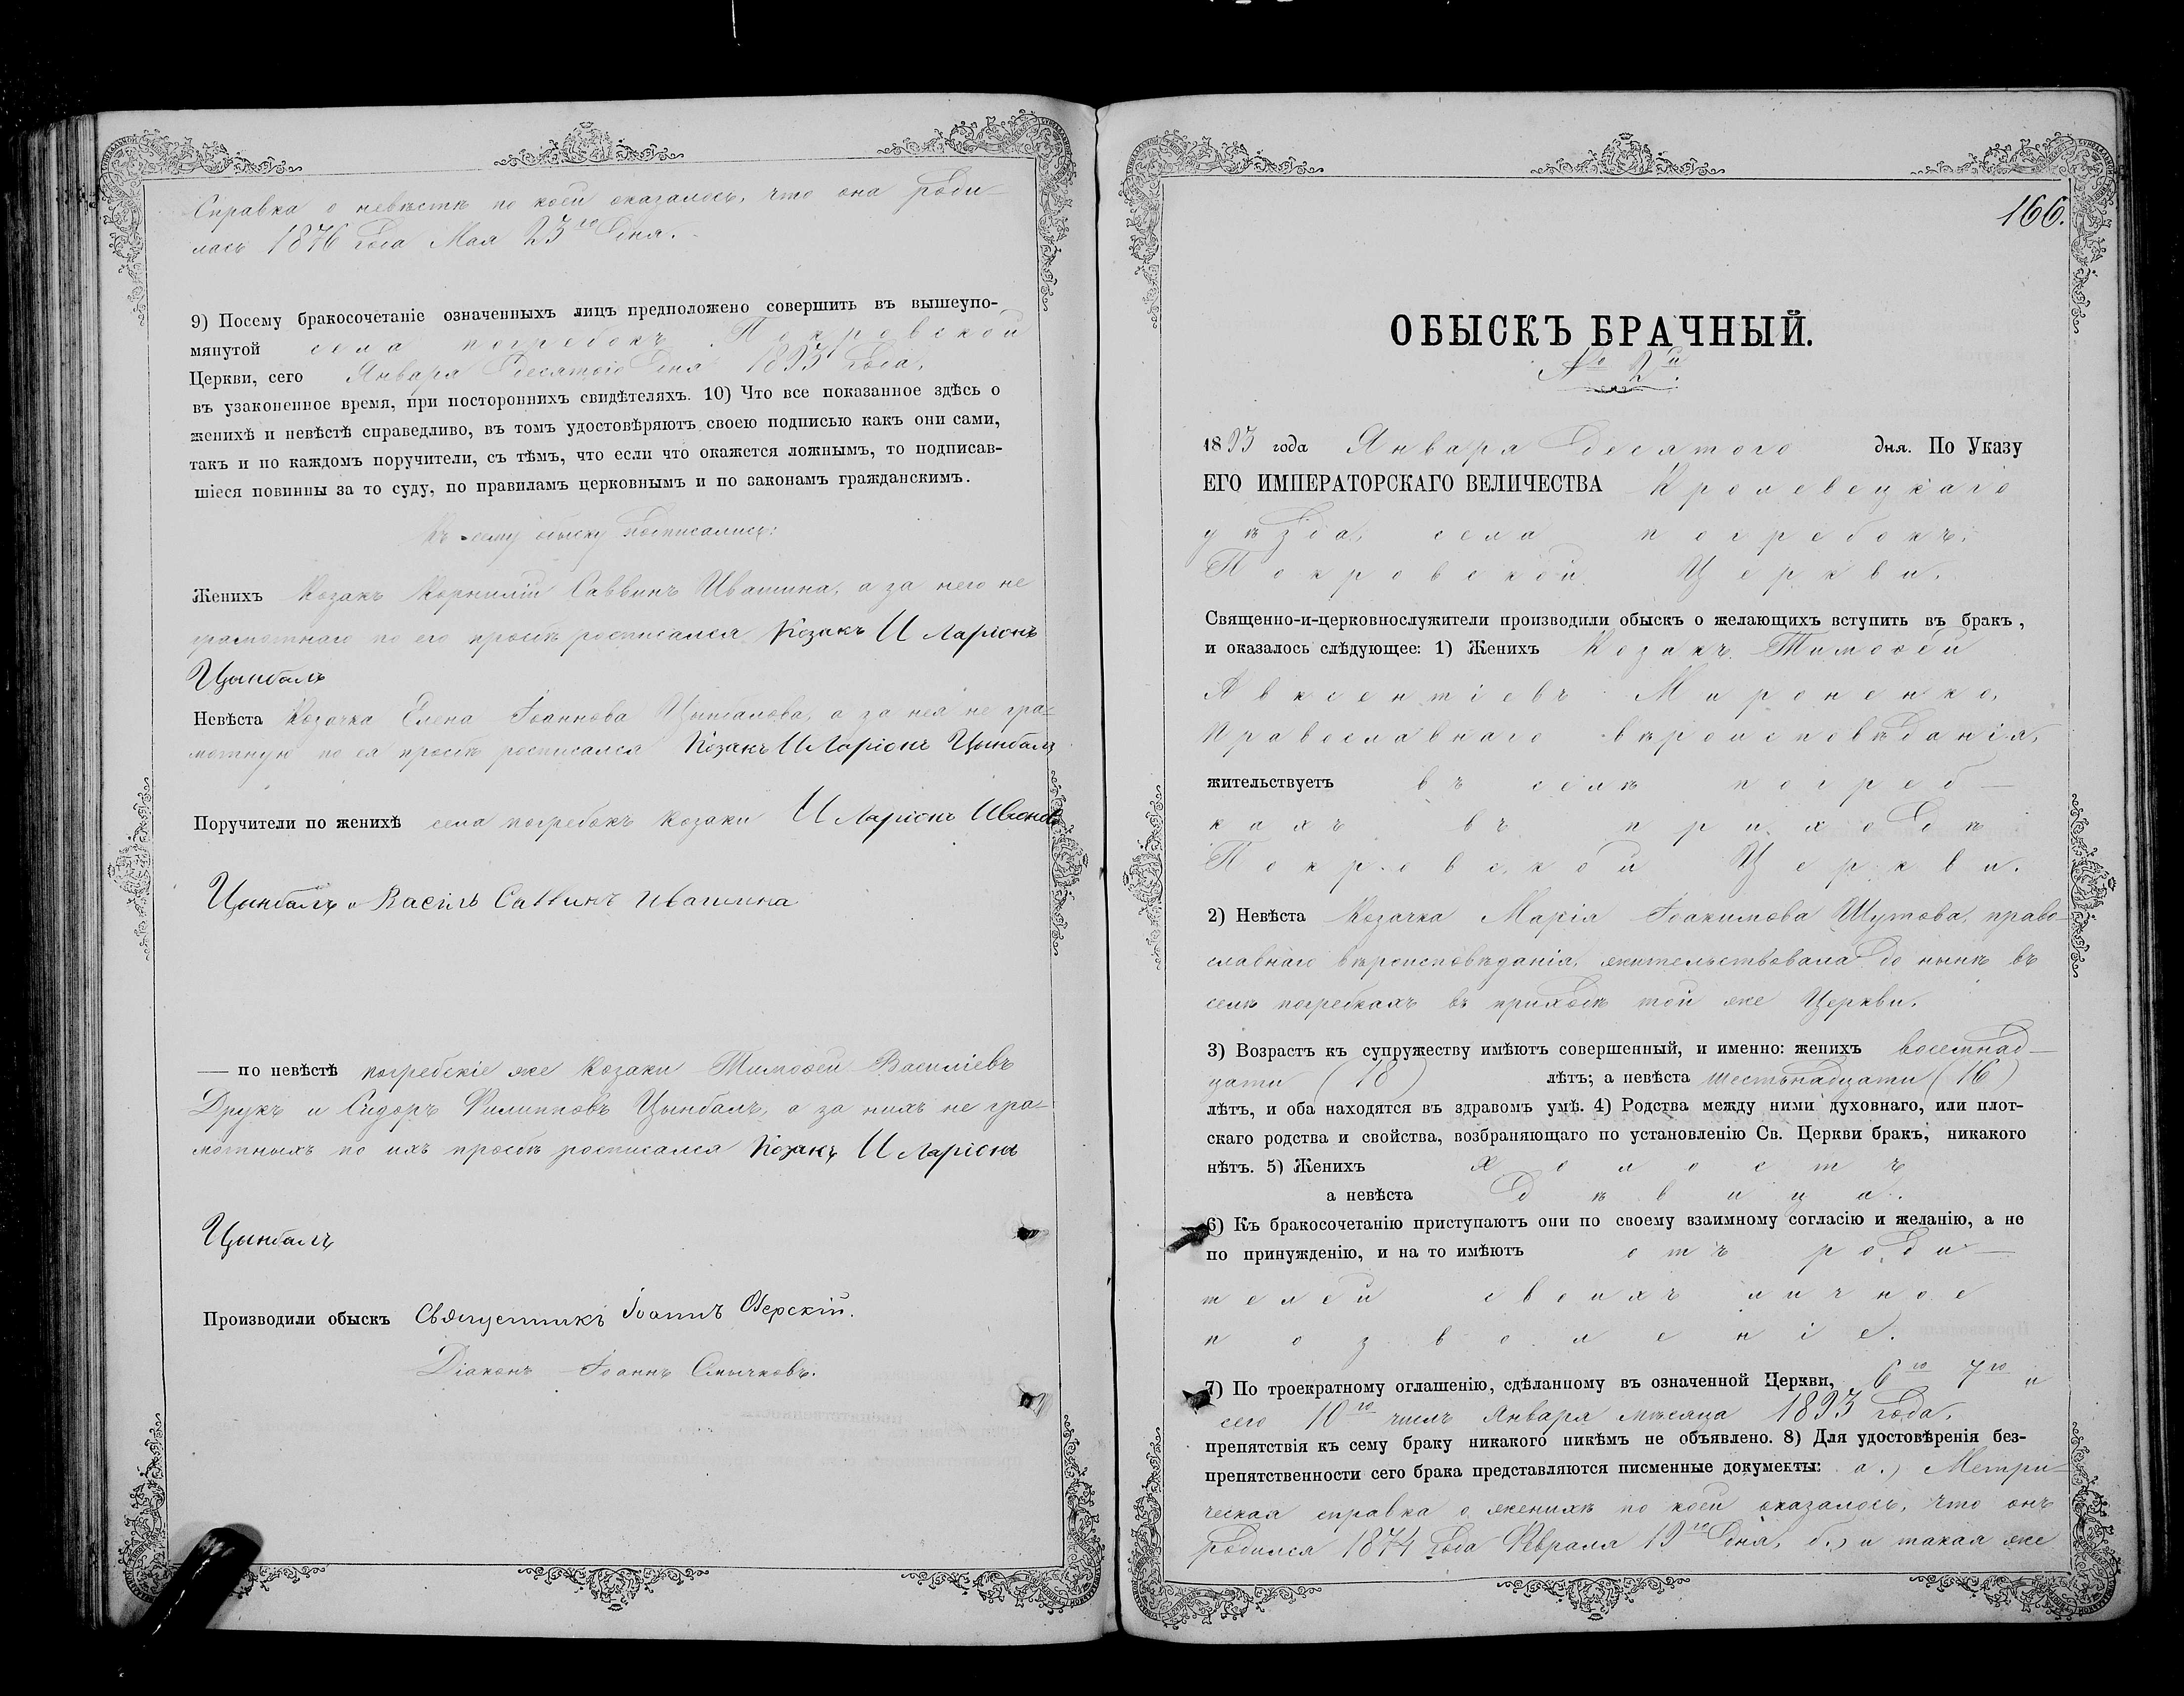 Справка о невѣстѣ по коей оказалось, что она роди-
лась 1876 года Мая 23го дня.
9) Посему бракосочетаніе означенныхъ лицъ предположено совершить въ вышеупо-
мянутой села погребокъ Покровской
Церкви, сего Января десятого дня 1893 года,
въ узаконенное время, при постороннихъ свидѣтеляхъ. 10) Что все показанное здѣсь о
женихѣ и невѣстѣ справедливо, въ томъ удостовѣряютъ своею подписью какъ они сами,
такъ и по каждомъ поручители, съ тѣмъ, что если что окажется ложнымъ, то подписав-
шіеся повинны за то суду, по правиламъ церковнымъ и по законамъ гражданскимъ.
Къ сему обыску подписались:
Женихъ Козакъ Корнилій Саввинъ Ивашина, а за него не
грамотнаго по его просьбѣ росписался Козакъ Иларіонъ
Цынбалъ
Невѣста Козачка Елена Іоаннова Цынбалова, а за нея не гра-
мотную по ея просьбѣ росписался Козакъ Иларіонъ Цынбалъ
Поручители по женихѣ села погребокъ козаки Иларіонъ Ивановъ
Цынбалъ и Василь Саввинъ Ивашина
— по невѣстѣ погребскіе же козаки Тимоѳей Василіевъ
Друкъ и Сидоръ Филипповъ Цынбалъ, а за нихъ не гра-
мотныхъ по ихъ просьбѣ росписался Козакъ Иларіонъ
Цынбалъ
Производили обыскъ Священникъ Іоаннъ Озерскій.
Діаконъ Іоаннъ Смычковъ.
166.
ОБЫСКЪ БРАЧНЫЙ.
№ 2й
1893 года Января десятого дня. По Указу
ЕГО ИМПЕРАТОРСКАГО ВЕЛИЧЕСТВА Кролевецкаго
уѣзда, села погребокъ,
Покровской Церкви.
Священно-и-церковнослужители производили обыскъ о желающихъ вступить въ бракъ,
и оказалось слѣдующее: 1) Женихъ Козакъ Тимоѳей
Авксентіевъ Мироненко,
православнаго вѣроисповѣданія,
жительствуетъ въ селѣ погреб-
кахъ въ приходѣ
Покровской Церкви.
2) Невѣста Козачка Марія Іоакимова Шутова, право-
славнаго вѣроисповѣданія, жительствовала до нынѣ въ
селѣ погребкахъ въ приходѣ той же Церкви.
3) Возрастъ къ супружеству имѣютъ совершенный, и именно: женихъ восемнад-
цати (18) лѣтъ; а невѣста шестьнадцати (16)
лѣтъ, и оба находятся въ здравомъ умѣ. 4) Родства между ними духовнаго, или плот-
скаго родства и свойства, возбраняющаго по установленію Св. Церкви бракъ, никакого
нѣтъ. 5) Женихъ Холостъ
а невѣста Дѣвица.
6) Къ бракосочетанію приступаютъ они по своему взаимному согласію и желанію, а не
по принужденію, и на то имѣютъ отъ роди-
телей своихъ личное
позволеніе.
7) По троекратному оглашенію, сдѣланному въ означенной Церкви, 6го 7го и
сего 10го числъ Января мѣсяца 1893 года,
препятствія къ сему браку никакого никѣмъ не объявлено. 8) Для удостовѣренія без-
препятственности сего брака представляются писменные документы: а.) Метри-
ческая справка о женихѣ по коей оказалось, что онъ
родился 1874 года Февраля 19го дня, б.) и такая же